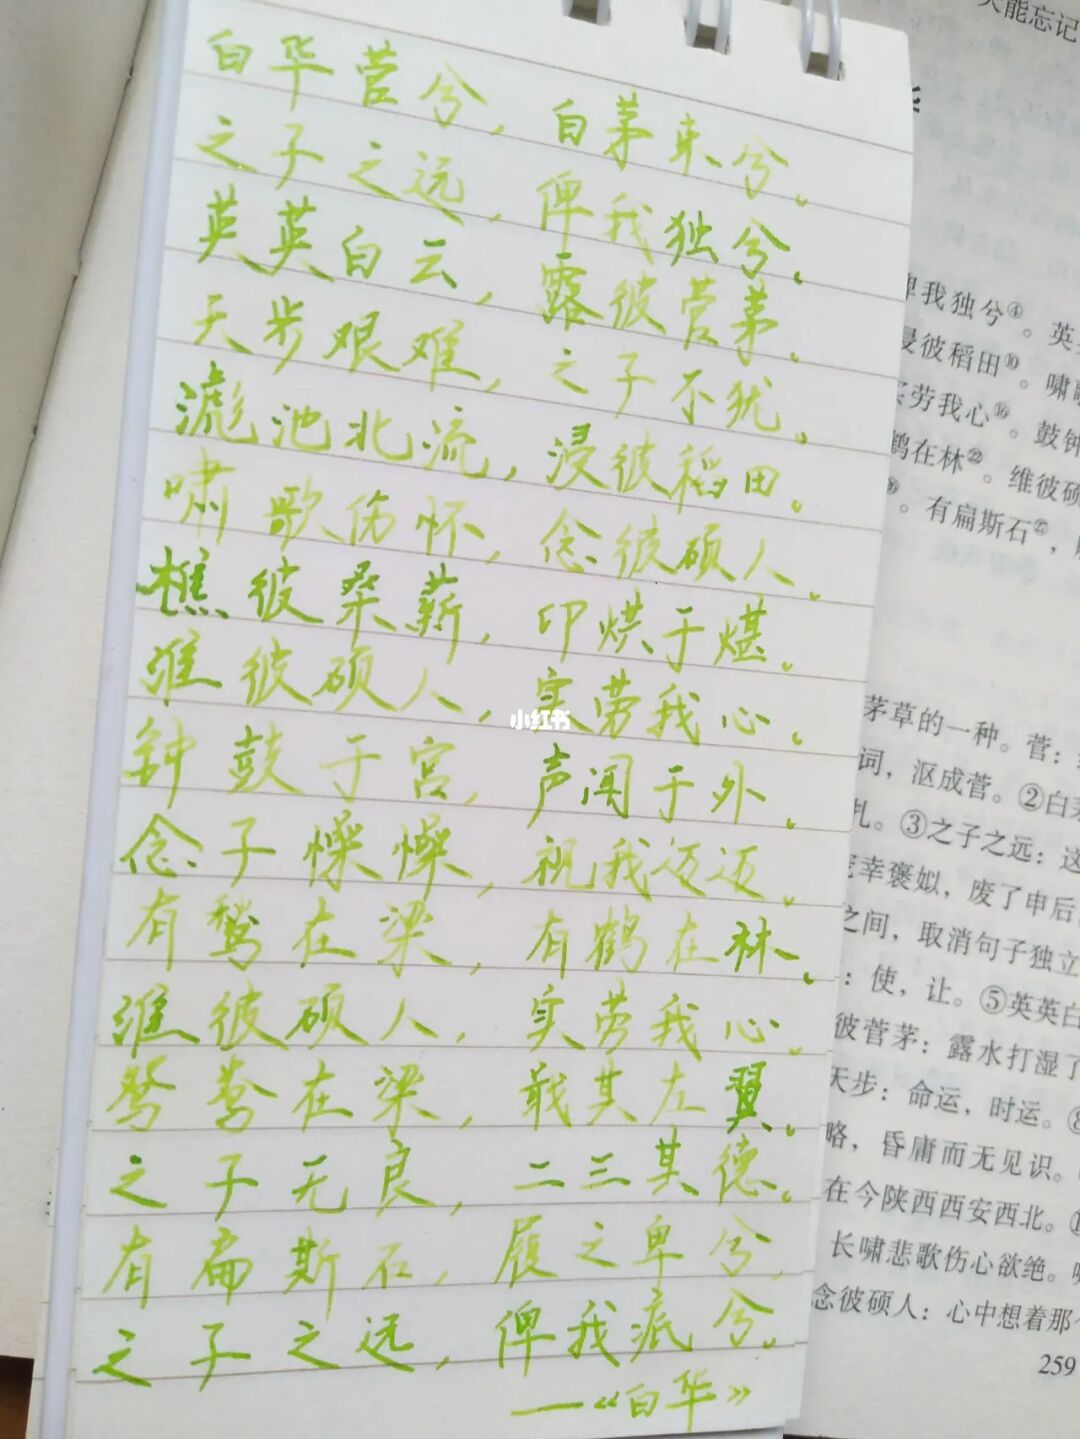 白华菅兮，白茅束兮。
之子之远，俾我独兮。
英英白云，露彼菅茅。
天步艰难，之子不犹。
滮池北流，浸彼稻田。
啸歌伤怀，念彼硕人。
樵彼桑薪，卬烘于煁。
维彼硕人，实劳我心。
钟鼓于宫，声闻于外。
念子懆懆，视我迈迈。
有鹙在梁，有鹤在林。
维彼硕人，实劳我心。
鸳鸯在梁，戢其左翼。
之子无良，二三其德。
有扁斯石，履之卑兮。
之子之远，俾我疧兮。
——《白华》
小红书
天能忘记
华
俾我独兮④。英
浸彼稻田⑩。啸歌
实劳我心⑯。鼓钟
鹤在林㉒。维彼硕
。有扁斯石㉗，
茅草的一种。菅：
词，沤成菅。②白茅
扎。③之子之远：这
宠幸褒姒，废了申后
之间，取消句子独立
：使，让。⑤英英白
彼菅茅：露水打湿了
天步：命运，时运。⑧
略，昏庸而无见识。
在今陕西西安西北。
长啸悲歌伤心欲绝。
念彼硕人：心中想着那个
259